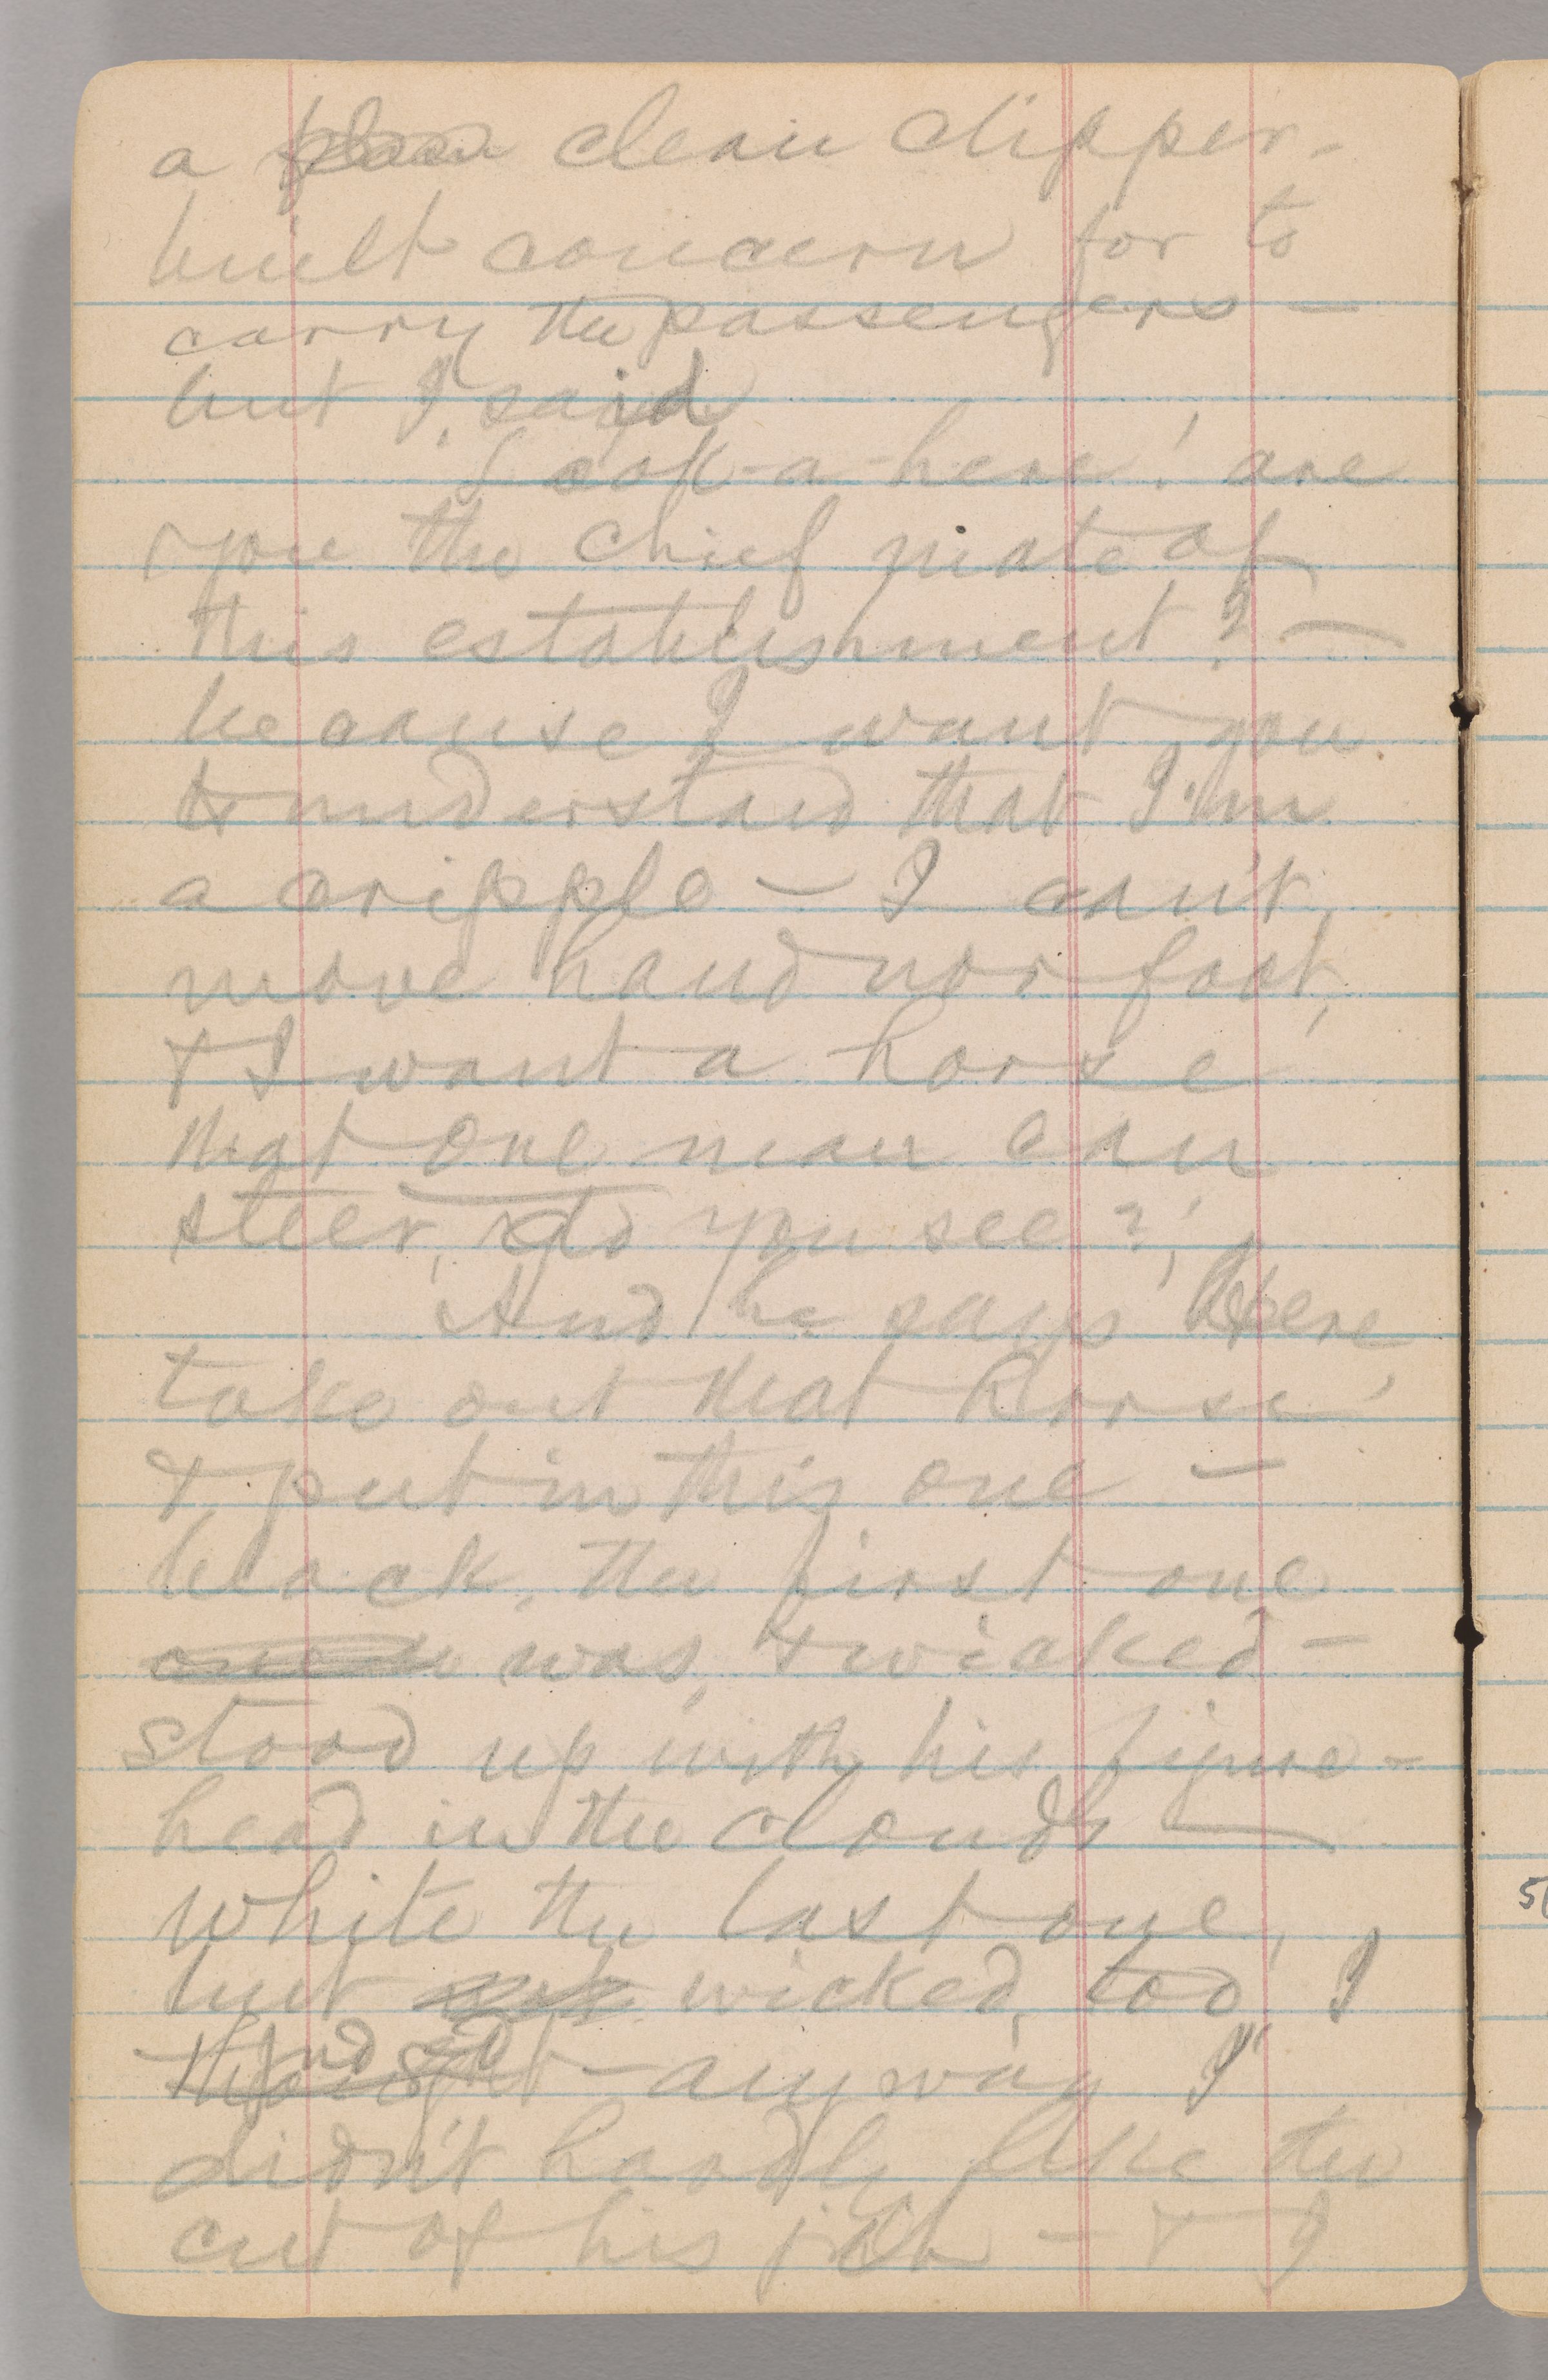 a clean clipper-
built concern for to
carry the passengers —
but I, said
Look-a-here! are
you the chief mate of
this establishment? —
because I want you
to understand that I'm
a cripple — I can't
move hand nor foot,
& I want a horse
that one man can
steer, do you see?'
And he says 'Here
take out that horse'
& put in this one —
black, the first one
was, & wicked —
stood up with his figure-
head in the clouds —
white the last one,
but wicked, too, I
judged — anyway I
didn't hardly like the
cut of his jib — & I
5